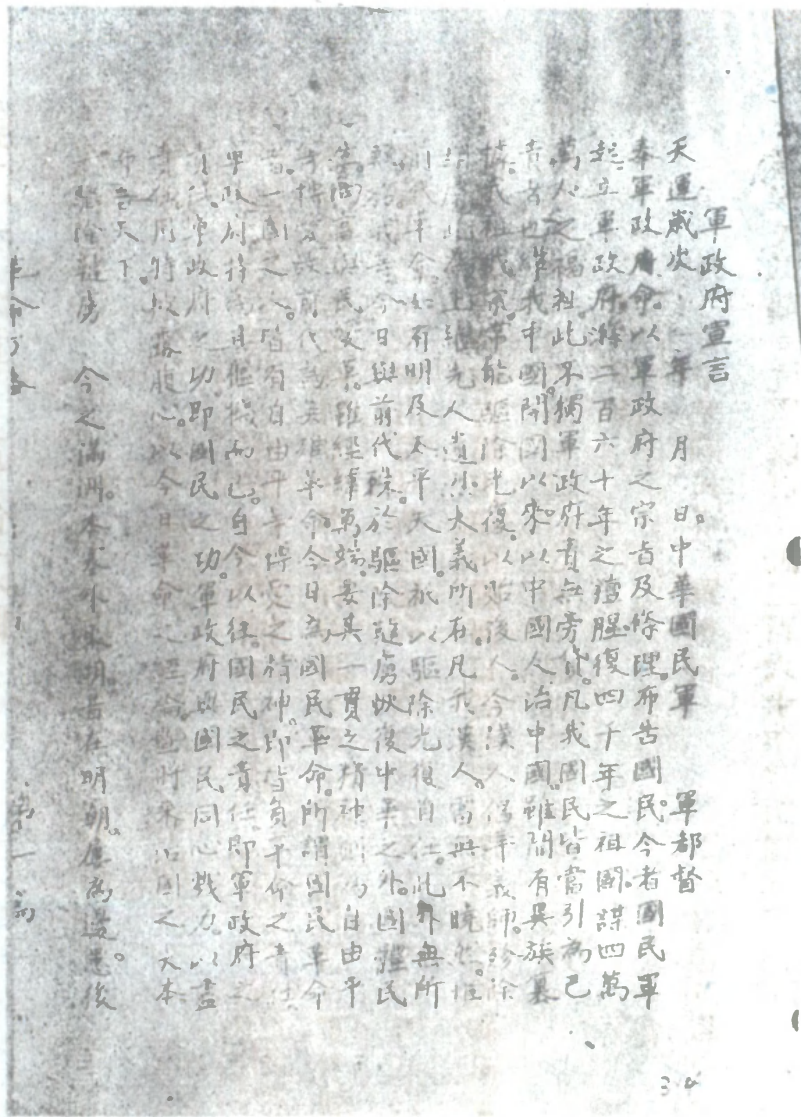 軍政府宣言
天運歲次 年 月 日。中華國民軍 軍都督
奉軍政府命。以軍政府之宗旨及條理。布告國民。今者國民軍
起。立軍政府。滌二百六十年之羶腥。復四千年之祖國。謀四萬
萬人之福祉。此不獨軍政府責無旁貸。凡我國民皆當引為己
責者也。維我中國開國以來。以中國人治中國。雖間有異族篡
據。我祖我宗。常能驅除光復。以貽後人。今漢人倡率義師。殄除
上繼先人遺烈。大義所在。凡我漢人。當無不曉然。惟
前代革命。如有明及太平天國。祇以驅除光復自任。此外無所
今日與前代殊。於驅除韃虜恢復中華之外。國體民
生。尚當與民變革。雖經緯萬端。要其一貫之精神。則為自由平
等博愛。故前代為英雄革命。今日為國民革命。所謂國民革命
者。一國之人。皆有自由平等博愛之精神。即皆負革命之責任。
軍政府特為其樞機而已。自今以往。國民之責任。即軍政府之
責任。軍政府之功。即國民之功。軍政府與國民。同心戮力。以盡
責任。用特披露腹心。以今日革命之經綸。暨將來治國之大本
布告天下。
一 驅除韃虜 今之滿洲。本塞外東胡。昔在明朝。屢為邊患。後
第一
34